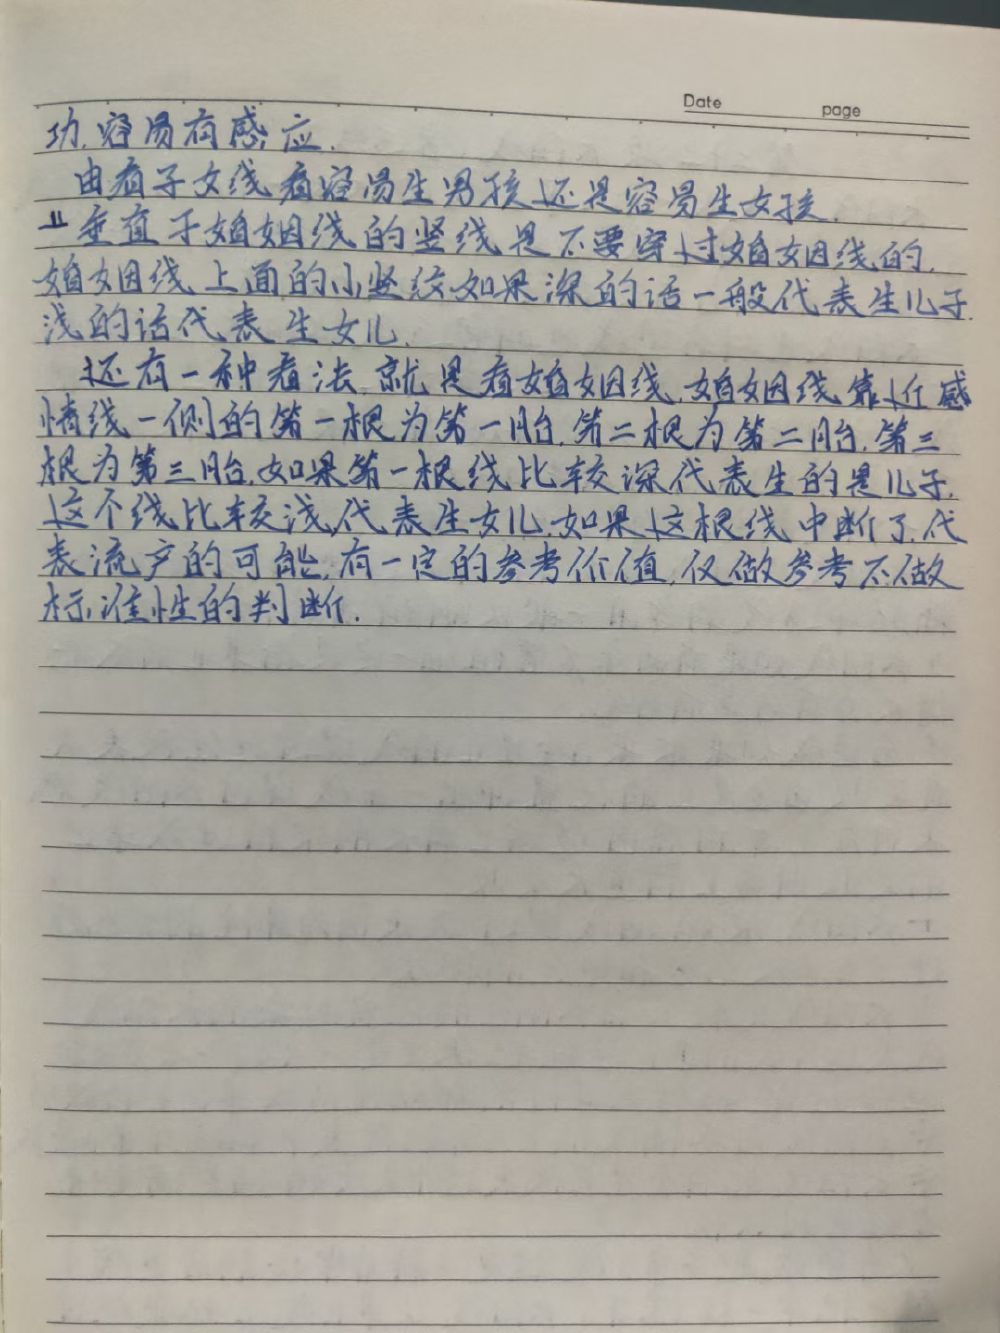 Date page
功,容易有感应.
由看子女线看容易生男孩还是容易生女孩.
垂直于婚姻线的竖线是不要穿过婚姻线的,
婚姻线上面的小竖纹如果深的话一般代表生儿子.
浅的话代表生女儿.
还有一种看法,就是看婚姻线,婚姻线靠近感
情线一侧的第一根为第一胎,第二根为第二胎,第三
根为第三胎,如果第一根线比较深代表生的是儿子,
这个线比较浅,代表生女儿,如果这根线中断了,代
表流产的可能,有一定的参考价值,仅做参考不做
标准性的判断.